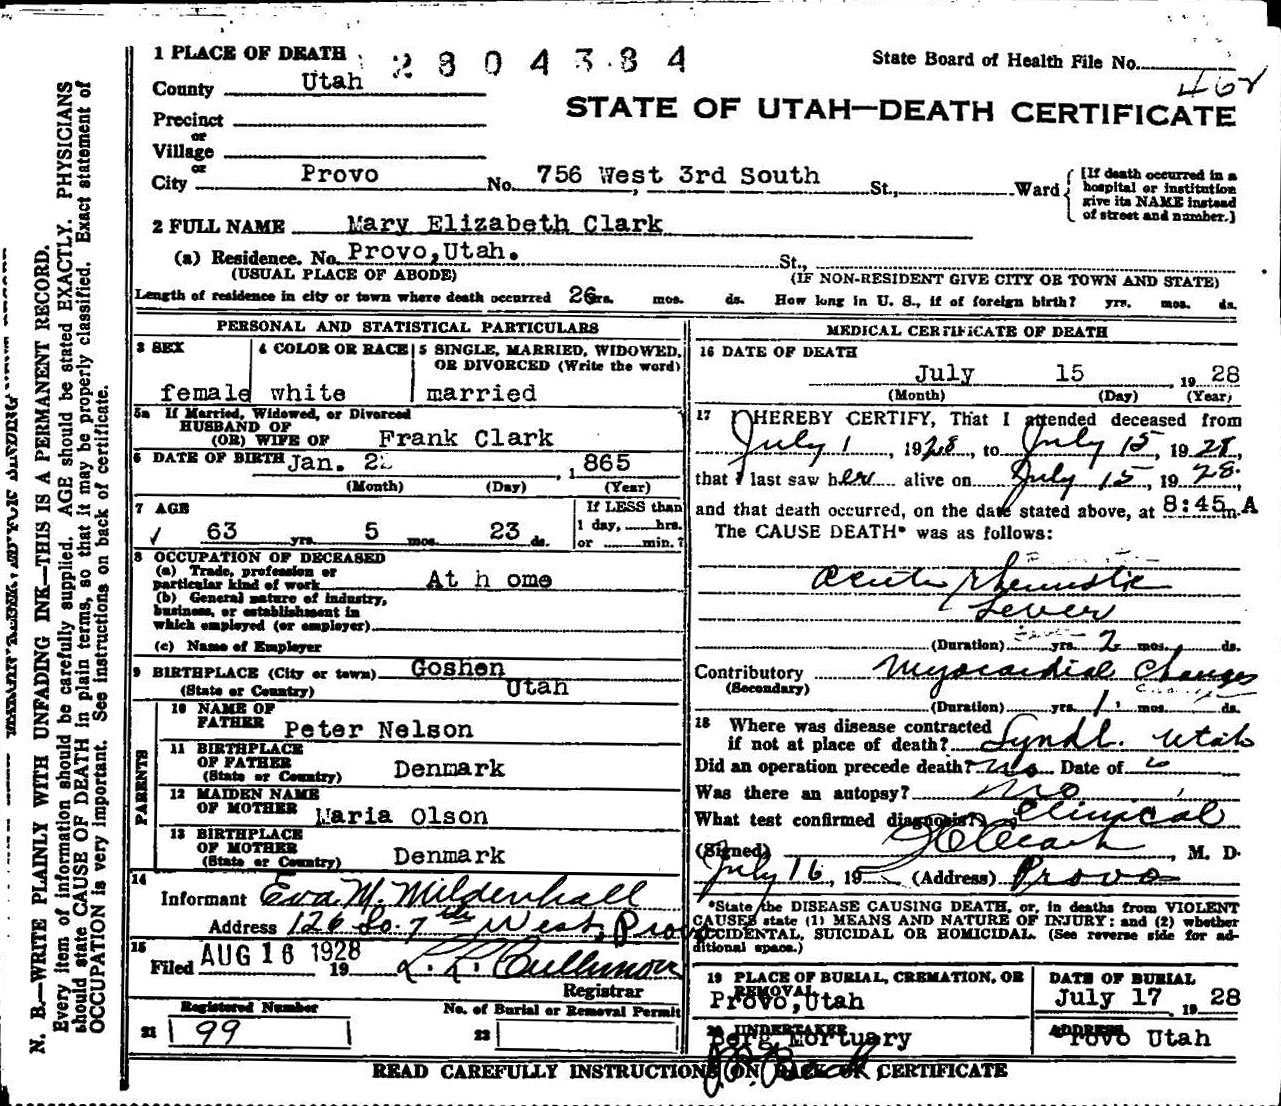 1 PLACE OF DEATH
2804384
State Board of Health File No.
462
County Utah
STATE OF UTAH—DEATH CERTIFICATE
Precinct
or
Village
or
City Provo No. 756 West 3rd South St., Ward
[If death occurred in a
hospital or institution
give its NAME instead
of street and number.]
2 FULL NAME Mary Elizabeth Clark
(a) Residence. No. Provo,Utah. St.,
(USUAL PLACE OF ABODE) (IF NON-RESIDENT GIVE CITY OR TOWN AND STATE)
Length of residence in city or town where death occurred 26 yrs. mos. ds. How long in U. S., if of foreign birth? yrs. mos. ds.
PERSONAL AND STATISTICAL PARTICULARS
3 SEX
female
4 COLOR OR RACE
white
5 SINGLE, MARRIED, WIDOWED,
OR DIVORCED (Write the word)
married
5a If Married, Widowed, or Divorced
HUSBAND OF
(OR) WIFE OF Frank Clark
6 DATE OF BIRTH Jan. 22 , 1865
(Month) (Day) (Year)
7 AGE
63 yrs. 5 mos. 23 ds.
If LESS than
1 day, hrs.
or min.?
8 OCCUPATION OF DECEASED
(a) Trade, profession or
particular kind of work At h ome
(b) General nature of industry,
business, or establishment in
which employed (or employer)
(c) Name of Employer
9 BIRTHPLACE (City or town) Goshen
(State or Country) Utah
PARENTS
10 NAME OF
FATHER Peter Nelson
11 BIRTHPLACE
OF FATHER
(State or Country) Denmark
12 MAIDEN NAME
OF MOTHER Maria Olson
13 BIRTHPLACE
OF MOTHER
(State or Country) Denmark
14
Informant Eva M. Mildenhall
Address 126 So. 7th West, Provo
15
Filed AUG 16 1928 19 L. L. Cullimore
Registrar
Registered Number
21 99
No. of Burial or Removal Permit
22
MEDICAL CERTIFICATE OF DEATH
16 DATE OF DEATH
July 15 , 1928
(Month) (Day) (Year)
17 I HEREBY CERTIFY, That I attended deceased from
July 1, 1928, to July 15, 1928,
that I last saw her alive on July 15, 1928.
and that death occurred, on the date stated above, at 8:45 m. A
The CAUSE DEATH* was as follows:
Acute Rheumatic
Fever
(Duration) yrs. 2 mos. ds.
Contributory Myocardial Changes
(Secondary)
(Duration) yrs. 1 mos. ds.
18 Where was disease contracted
if not at place of death? Lyndl. Utah
Did an operation precede death? No Date of
Was there an autopsy? No
What test confirmed diagnosis? Clinical
(Signed) , M. D.
July 16, 19 (Address) Provo
*State the DISEASE CAUSING DEATH, or, in deaths from VIOLENT
CAUSES state (1) MEANS AND NATURE OF INJURY; and (2) whether
ACCIDENTAL, SUICIDAL OR HOMICIDAL. (See reverse side for ad-
ditional space.)
19 PLACE OF BURIAL, CREMATION, OR
REMOVAL
Provo,Utah
DATE OF BURIAL
July 17 , 1928
20 UNDERTAKER
Berg Mortuary
ADDRESS
Provo Utah
READ CAREFULLY INSTRUCTIONS ON BACK OF CERTIFICATE
N. B.—WRITE PLAINLY WITH UNFADING INK—THIS IS A PERMANENT RECORD.
Every item of information should be carefully supplied. AGE should be stated EXACTLY. PHYSICIANS
should state CAUSE OF DEATH in plain terms, so that it may be properly classified. Exact statement of
OCCUPATION is very important. See instructions on back of certificate.